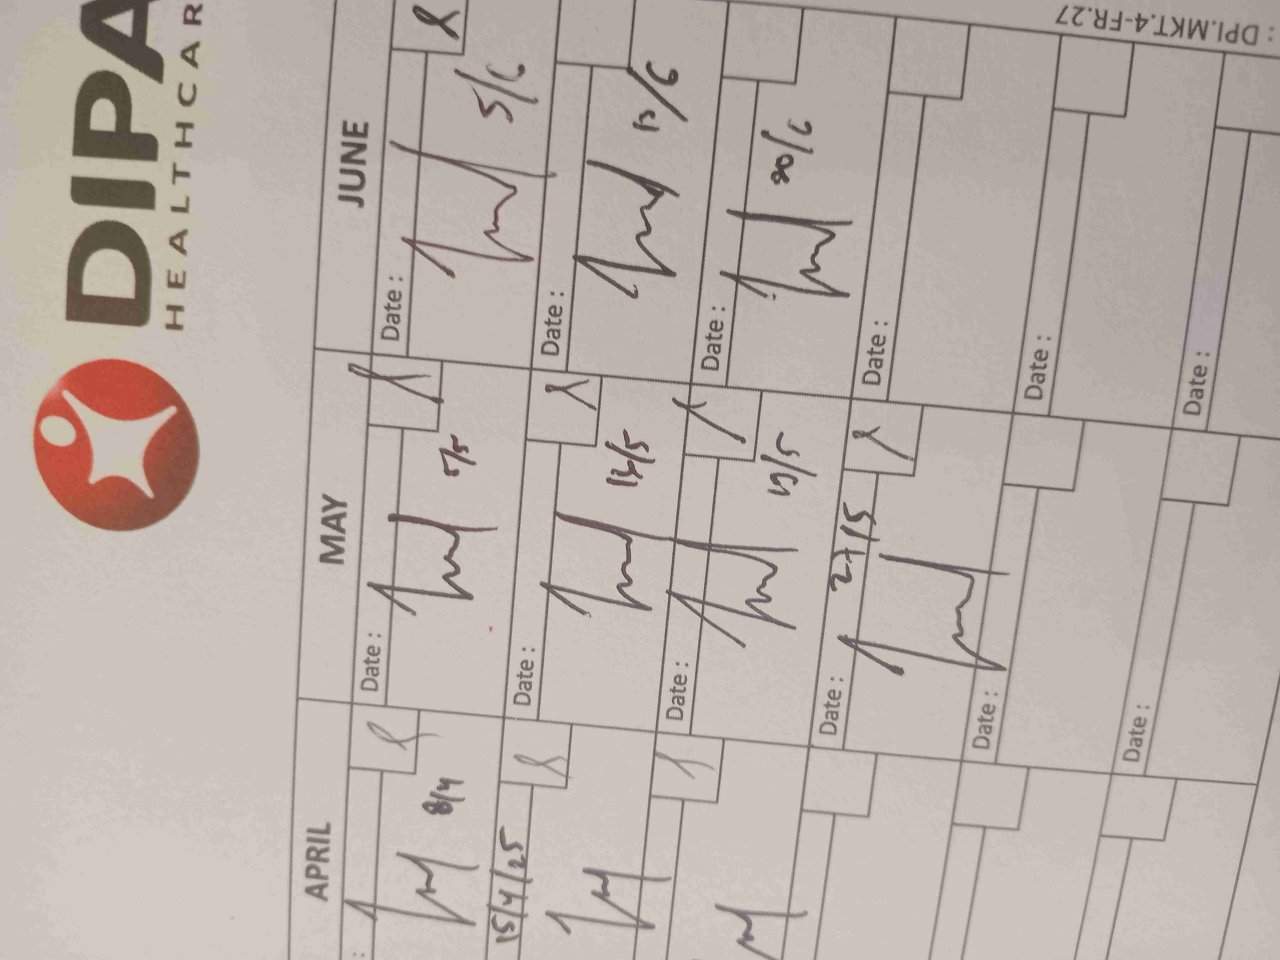 : DPI.MKT.4-FR.27
DIPA
HEALTHCAR
APRIL MAY JUNE
: Date : Date :
8/4 5/5 5/6
Date : Date :
15/4/25 14/5 13/6
Date : Date :
19/5 20/6
Date : Date :
27/5
Date : Date :
Date : Date :